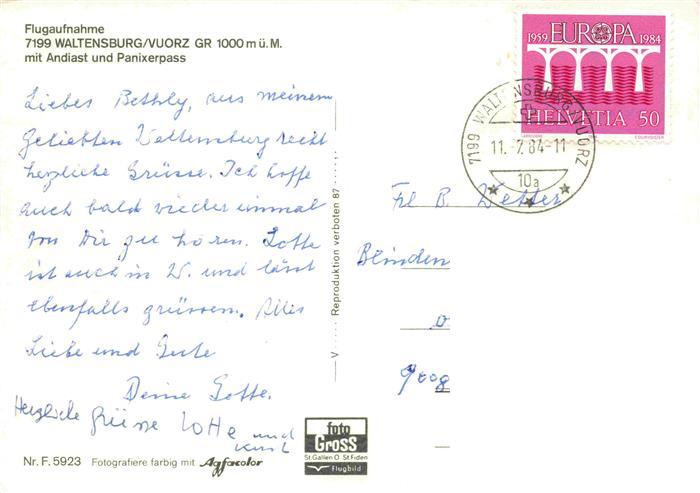 Flugaufnahme
7199 WALTENSBURG/VUORZ GR 1000 m ü. M.
mit Andiast und Panixerpass
Liebes Bethly, aus meinem
geliebten Waltensburg recht
herzliche Grüsse. Ich hoffe
auch bald wieder einmal
von Dir zu hören. Lotte
ist auch in W. und lässt
ebenfalls grüssen. Alles
Liebe und Gute
Deine Gotte.
Herzliche Grüsse Lotte und
Nr. F. 5923 Fotografiere farbig mit Agfacolor
V ..... Reproduktion verboten 87 .....
foto
Gross
St. Gallen O St. Fiden
Flugbild
1959 EUROPA 1984
HELVETIA 50
7199 WALTENSBURG/VUORZ
11.-7.84-11
10a
Frl B. Wetter
Blinden
9009